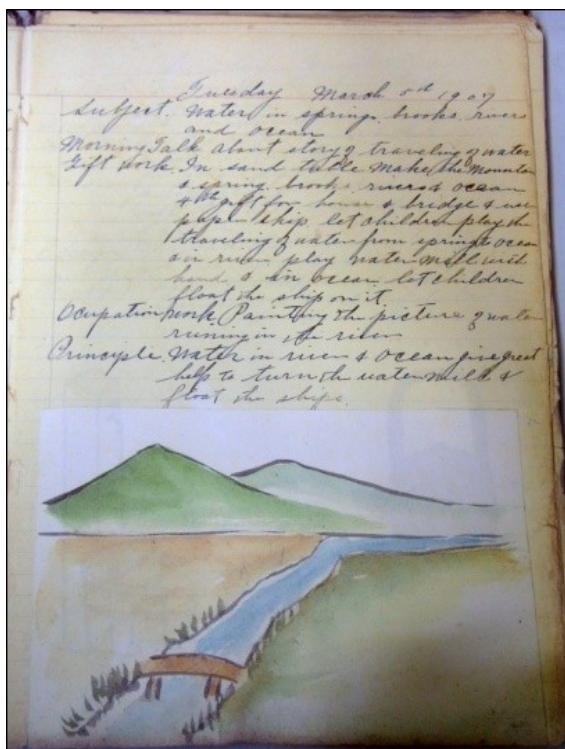 Tuesday March 5th 1907
Subject. Water in springs, brooks, rivers
and ocean
Morning Talk about story of traveling of water
Gift work. In sand table make the mountain
& spring, brooks, rivers & ocean
4th gift for house & bridge & use
pape ship let children play the
traveling of water from spring to ocean
& in river play water mill with
hand & in ocean let children
float the ship on it.
Ocupation work Painting the picture of water
runing in the river
Principle. Water in river & ocean give great
help to turn the water mill &
float the ships.